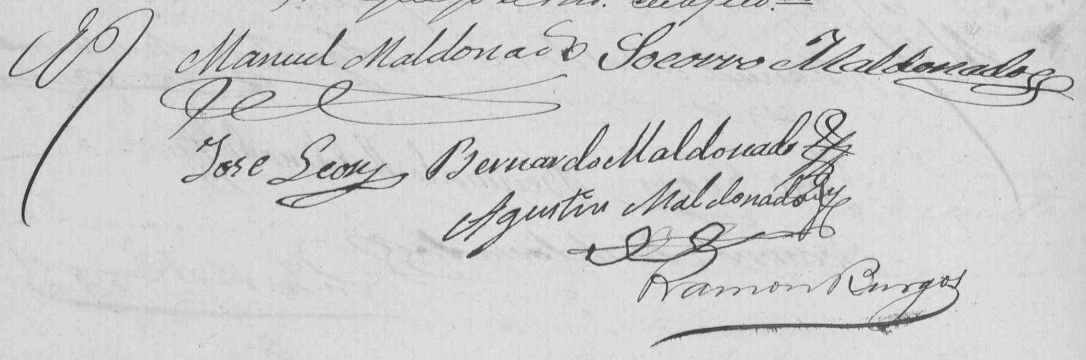 Manuel Maldonado Socorro Maldonado
Jose Leon Bernardo Maldonado
Agustin Maldonado
Ramon Burgos